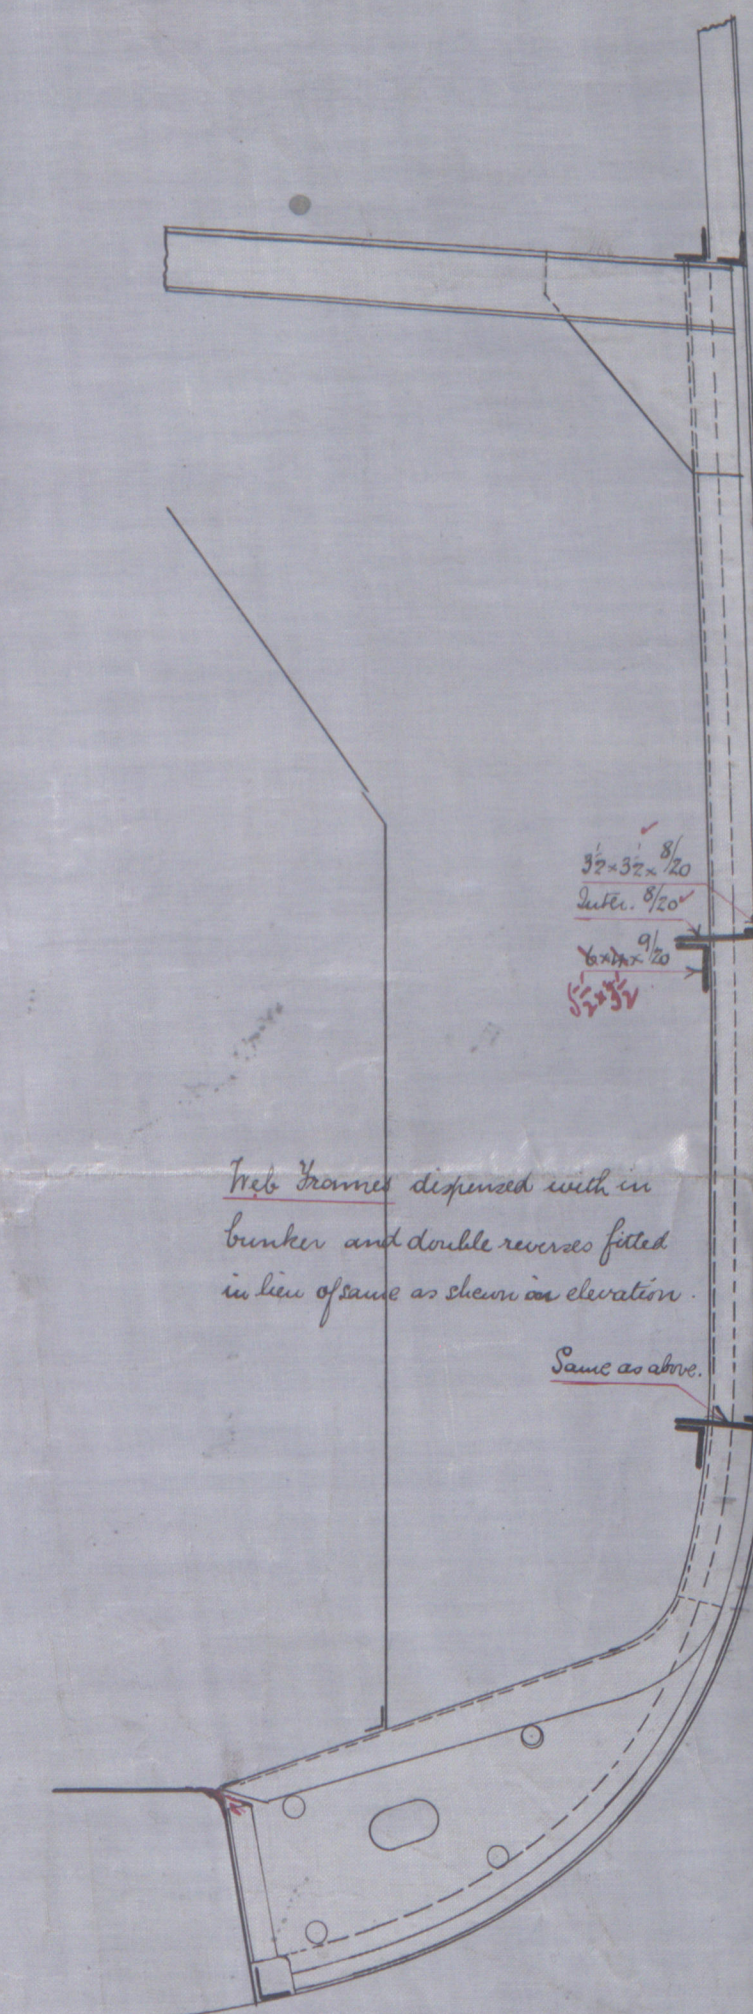 3½×3½×8/20
Inter. 8/20
6×4×9/20
5½×3½
Web Frames dispensed with in
bunker and double reverses fitted
in lieu of same as shewn in elevation.
Same as above.